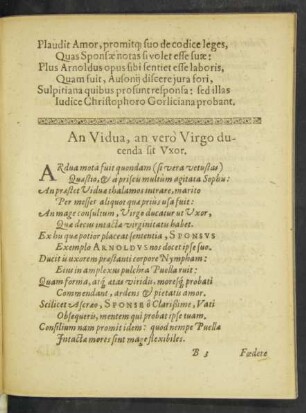 Plaudit Amor, promitq́; suo de codice leges,
Quas Sponsæ notas si volet esse suæ:
Plus Arnoldus opus sibi sentiet esse laboris,
Quam fuit, Ausonij discere jura fori,
Sulpitiana quibus prosunt responsa: sed illas
Iudice Christophoro Gorliciana probant.
An Vidua, an verò Virgo ducenda sit Vxor.
ARdua mota fuit quondam (si vera vetustas)
Quæstio, & à priscis multùm agitata Sophis:
An præstet Viduæ thalamos intrare, marito
Per messes aliquot quæ prius usa fuit:
An mage consultum, Virgo ducatur ut Vxor,
Quæ decus intactæ virginitatis habet.
Ex his quæ potior placeat sententia, SPONSVS
Exemplo ARNOLDVS nos docet ipse suo.
Ducit is uxorem præstanti corpore Nympham:
Eius in amplexus pulcrina Puella ruit:
Quam forma, atq́; ætas viridis, moresq́; probati
Commendant, ardens & pietatis amor.
Scilicet Ascræo, SPONSE ô Clarissime, Vati
Obsequeris, mentem qui probat ipse tuam.
Consilium nam promit idem: quod nempe Puellæ
Intactæ mores sint mage flexibiles.
B 3 Fœdere